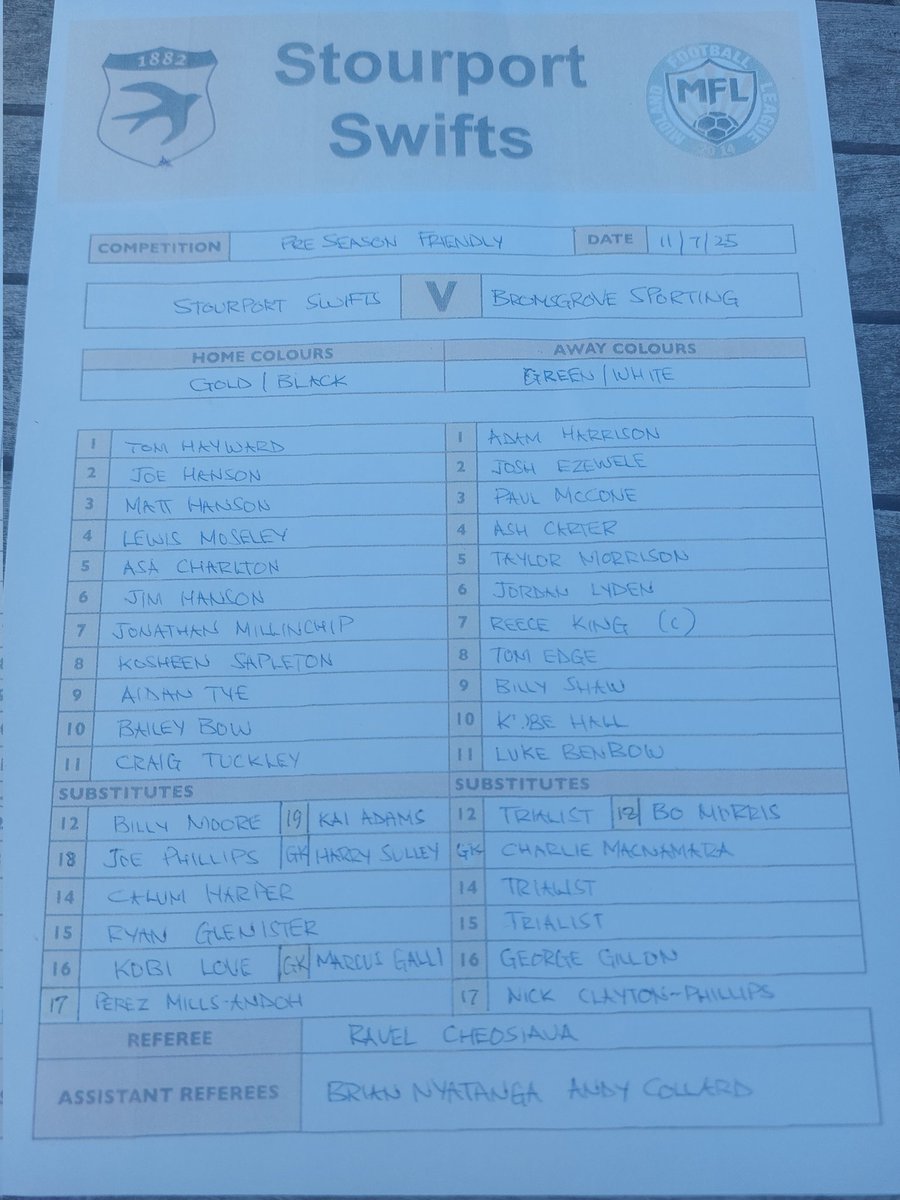 1882
Stourport
Swifts
MIDLAND FOOTBALL LEAGUE
MFL
2014
COMPETITION PRE SEASON FRIENDLY DATE 11/7/25
STOURPORT SWIFTS V BROMSGROVE SPORTING
HOME COLOURS AWAY COLOURS
GOLD / BLACK GREEN / WHITE
1 TOM HAYWARD 1 ADAM HARRISON
2 JOE HANSON 2 JOSH EZEWELE
3 MATT HANSON 3 PAUL MCCONE
4 LEWIS MOSELEY 4 ASH CARTER
5 ASA CHARLTON 5 TAYLOR MORRISON
6 JIM HANSON 6 JORDAN LYDEN
7 JONATHAN MILLINCHIP 7 REECE KING (C)
8 KOSHEEN SAPLETON 8 TOM EDGE
9 AIDAN TYE 9 BILLY SHAW
10 BAILEY BOW 10 KOBE HALL
11 CRAIG TUCKLEY 11 LUKE BENBOW
SUBSTITUTES SUBSTITUTES
12 BILLY MOORE 19 KAI ADAMS 12 TRIALIST BO MORRIS
18 JOE PHILLIPS GK HARRY SULLEY GK CHARLIE MACNAMARA
14 CALUM HARPER 14 TRIALIST
15 RYAN GLENISTER 15 TRIALIST
16 KOBI LOVE GK MARCUS GALLI 16 GEORGE GILLON
17 PEREZ MILLS-ANDOH 17 NICK CLAYTON-PHILLIPS
REFEREE RAVEL CHEOSIAUA
ASSISTANT REFEREES BRIAN NYATANGA ANDY COLLARD